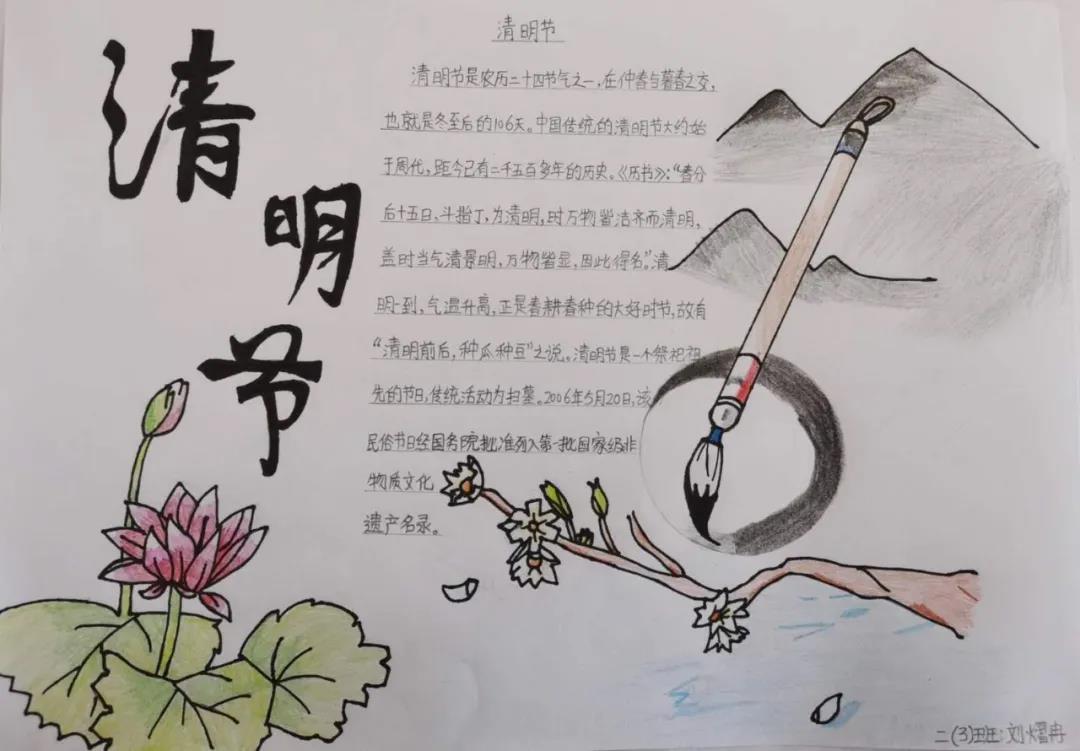 清明节
清明节
清明节是农历二十四节气之一,在仲春与暮春之交,
也就是冬至后的106天。中国传统的清明节大约始
于周代,距今已有二千五百多年的历史。《历书》:“春分
后十五日,斗指丁,为清明,时万物皆洁齐而清明,
盖时当气清景明,万物皆显,因此得名。”清
明一到,气温升高,正是春耕春种的大好时节,故有
“清明前后,种瓜种豆”之说。清明节是一个祭祀祖
先的节日,传统活动为扫墓。2006年5月20日,该
民俗节日经国务院批准列入第一批国家级非
物质文化
遗产名录。
二(3)班:刘熠冉